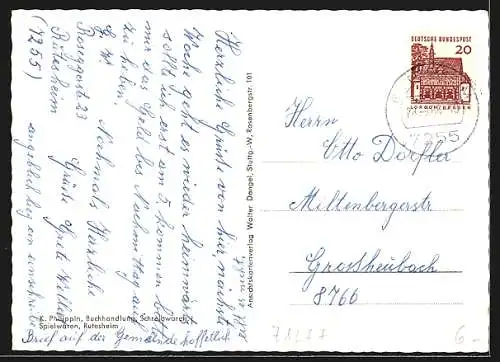 Herzliche Grüße von hier, nächste
Woche geht es wieder heimwärts
sollt ich erst am 5. kommen bitte
mir das Geld bis Nachmittag auf-
zu heben.
Nochmals Herzliche
Grüße
z. Zt.
Roseggerstr. 23
Rutesheim
(7255)
angeblich lag ein
Brief auf der Gemeinde hoffentlich
K. Philippin, Buchhandlung, Schreibwaren,
Spielwaren, Rutesheim
Ansichtskartenverlag Walter Dangel, Stuttg.-W, Rosenbergstr. 101
DEUTSCHE BUNDESPOST
20
LORSCH/HESSEN
7255
Herrn
Otto Dörfler
Miltenbergerstr
Großheubach
8766
6-